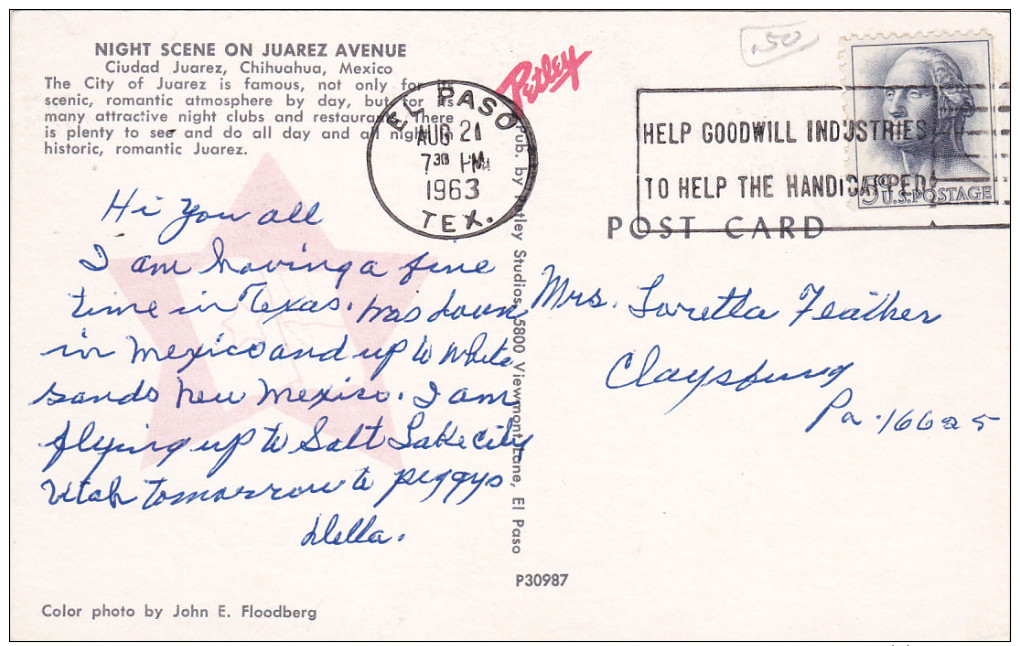 NIGHT SCENE ON JUAREZ AVENUE
Ciudad Juarez, Chihuahua, Mexico
The City of Juarez is famous, not only for its
scenic, romantic atmosphere by day, but for its
many attractive night clubs and restaurants. There
is plenty to see and do all day and all night in
historic, romantic Juarez.
Petley
.50
EL PASO
AUG 21
7 30 PM
1963
TEX.
HELP GOODWILL INDUSTRIES
TO HELP THE HANDICAPPED
5¢ U.S. POSTAGE
POST CARD
Hi You all
I am having a fine
time in Texas. was down
in Mexico and up to White
sands New Mexico. I am
flying up to Salt Lake city
Utah tomorrow to peggys
Della.
Pub. by Petley Studios, 5800 Viewmont Lane, El Paso
Mrs. Loretta Feather
Claysburg
Pa. 16625
P30987
Color photo by John E. Floodberg